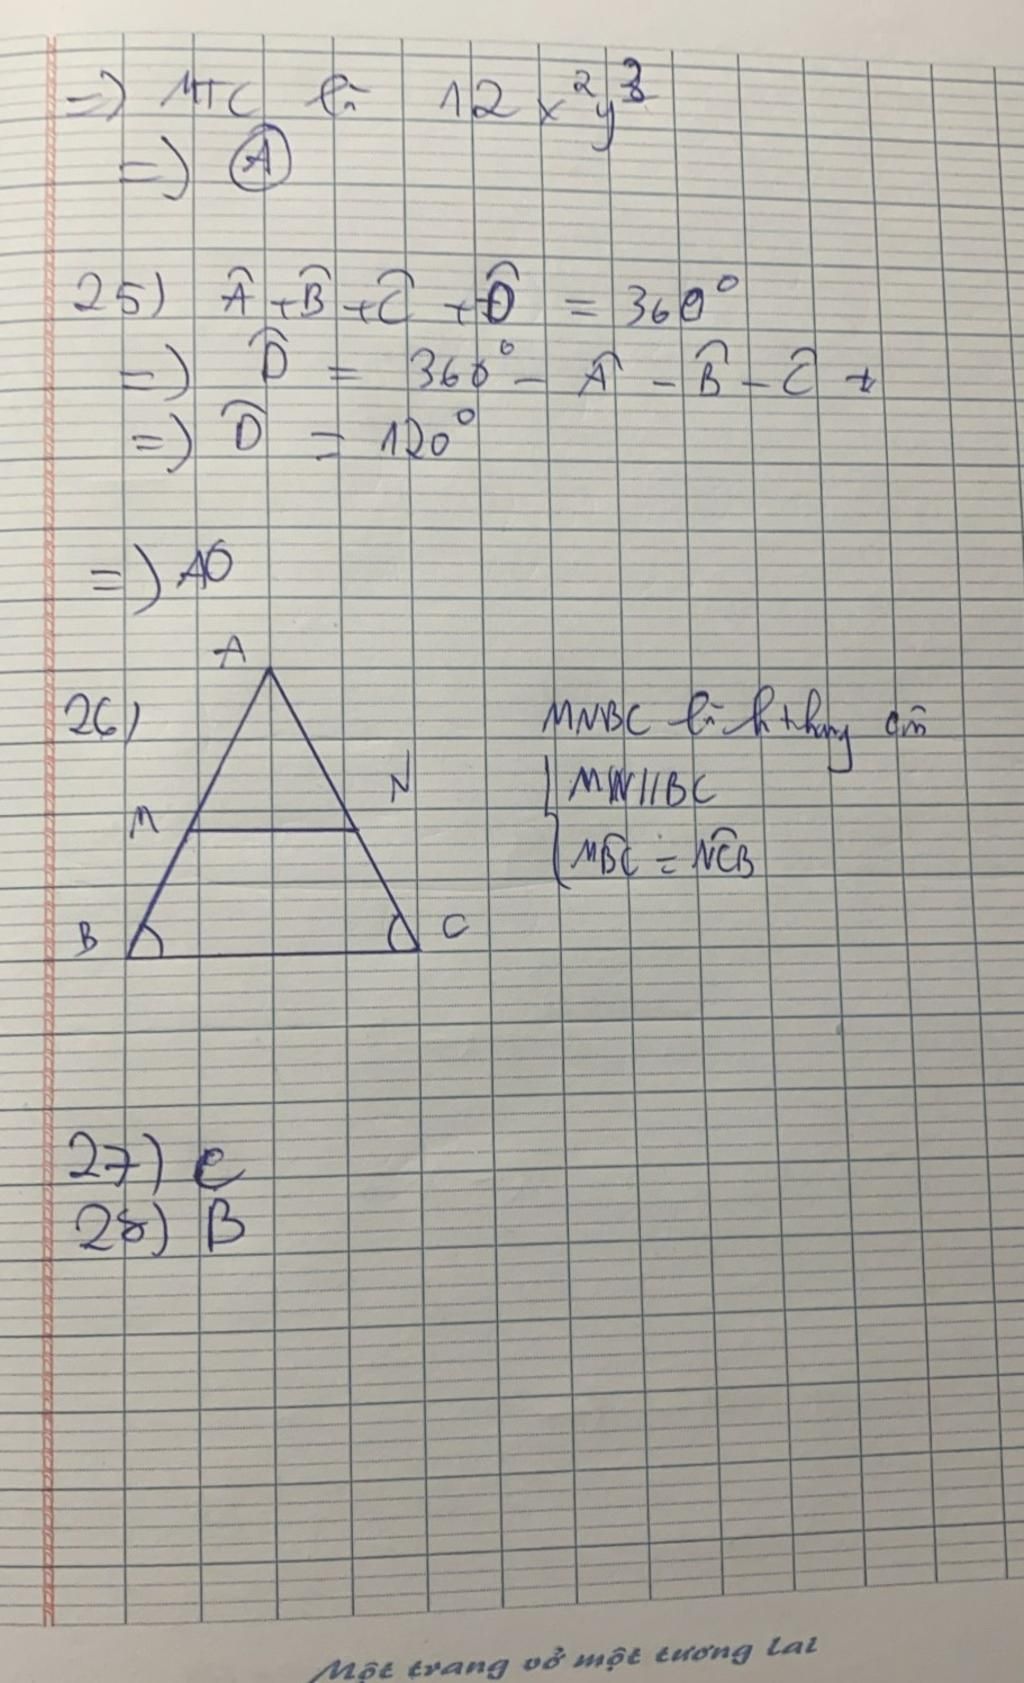 =) MTC là 12x²y³
=) A
25) Â + B̂ + Ĉ + D̂ = 360°
=) D̂ = 360° - Â - B̂ - Ĉ
=) D̂ = 120°
=) AO
A
26)
MNBC là h thang cân
N
MN//BC
M
MB̂C = NĈB
B C
27) C
28) B
Một trang vở một tương lai